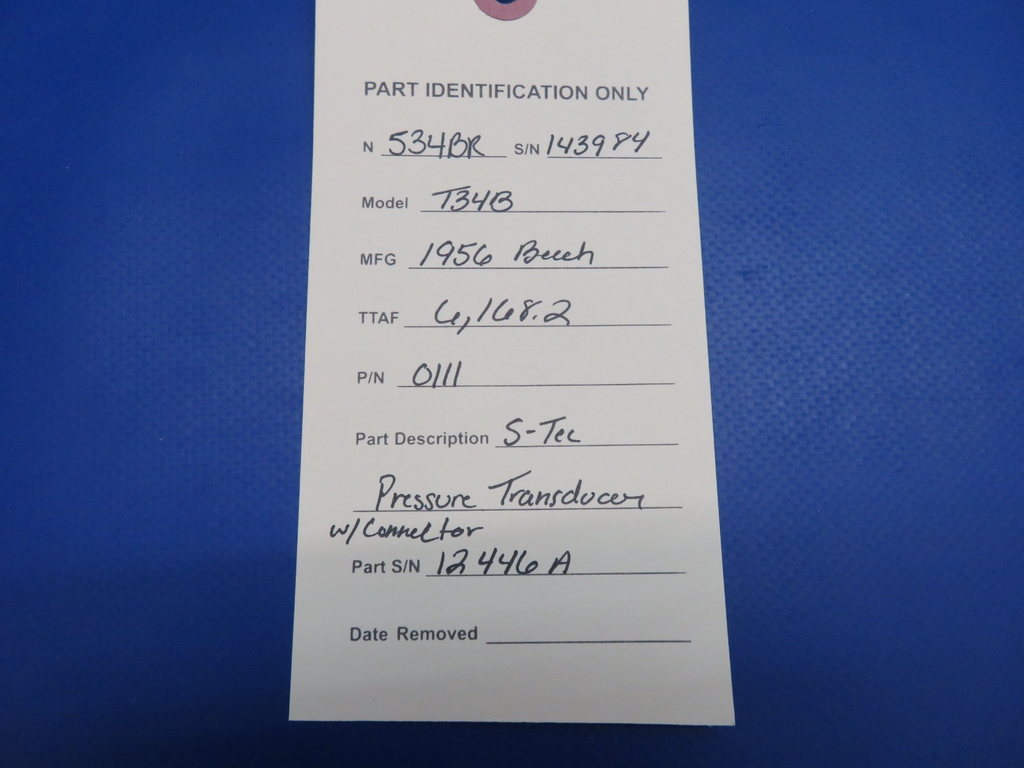 PART IDENTIFICATION ONLY
N 534BR S/N 143984
Model T34B
MFG 1956 Beech
TTAF 6,168.2
P/N 0111
Part Description S-Tec
Pressure Transducer
w/Connector
Part S/N 12446A
Date Removed